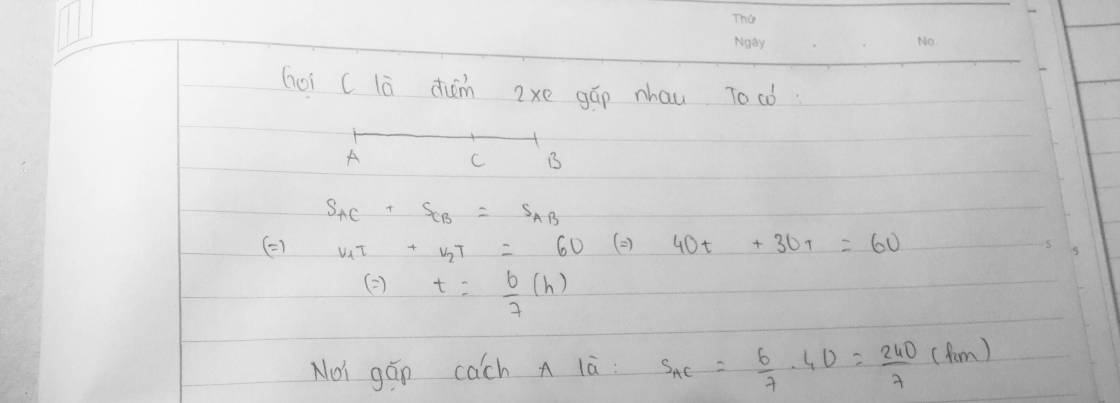 Thứ
Ngày . . No.
Gọi C là điểm 2 xe gặp nhau. Ta có:
A C B
S_AC + S_CB = S_AB
(=) v₁t + v₂t = 60 (=) 40t + 30t = 60
(=) t = 6/7 (h)
Nơi gặp cách A là: S_AC = 6/7 . 40 = 240/7 (km)